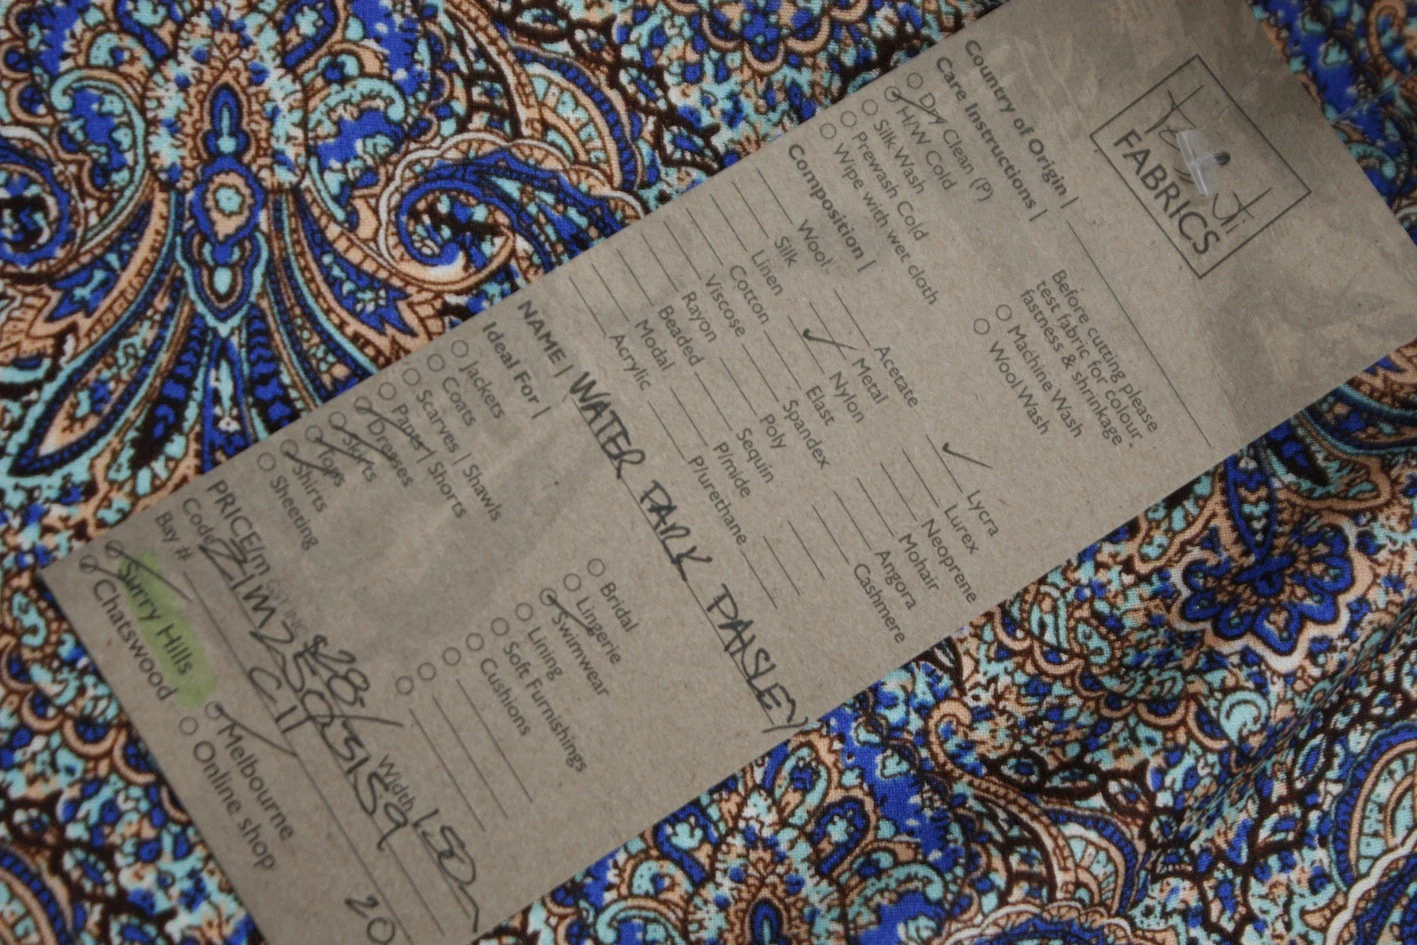 FABRICS
Country of Origin |
Care Instructions |
Dry Clean (P)
H/W Cold
Silk Wash
Prewash Cold
Wipe with wet cloth
Before cutting please
test fabric for colour
fastness & shrinkage.
Machine Wash
Wool Wash
Composition |
Wool
Silk
Linen
Cotton
Viscose
Rayon
Beaded
Modal
Acrylic
Acetate
Metal
Nylon
Elast
Spandex
Poly
Sequin
P/mide
P/urethane
Lycra
Lurex
Neoprene
Mohair
Angora
Cashmere
NAME | WATER PARK PAISLEY
Ideal For |
Jackets
Coats
Scarves | Shawls
Pants | Shorts
Dresses
Skirts
Tops
Shirts
Sheeting
Bridal
Lingerie
Swimwear
Lining
Soft Furnishings
Cushions
PRICE/m GST INC $28/ Width 150
Code
Bay # C11 20
Surry Hills Melbourne
Chatswood Online shop